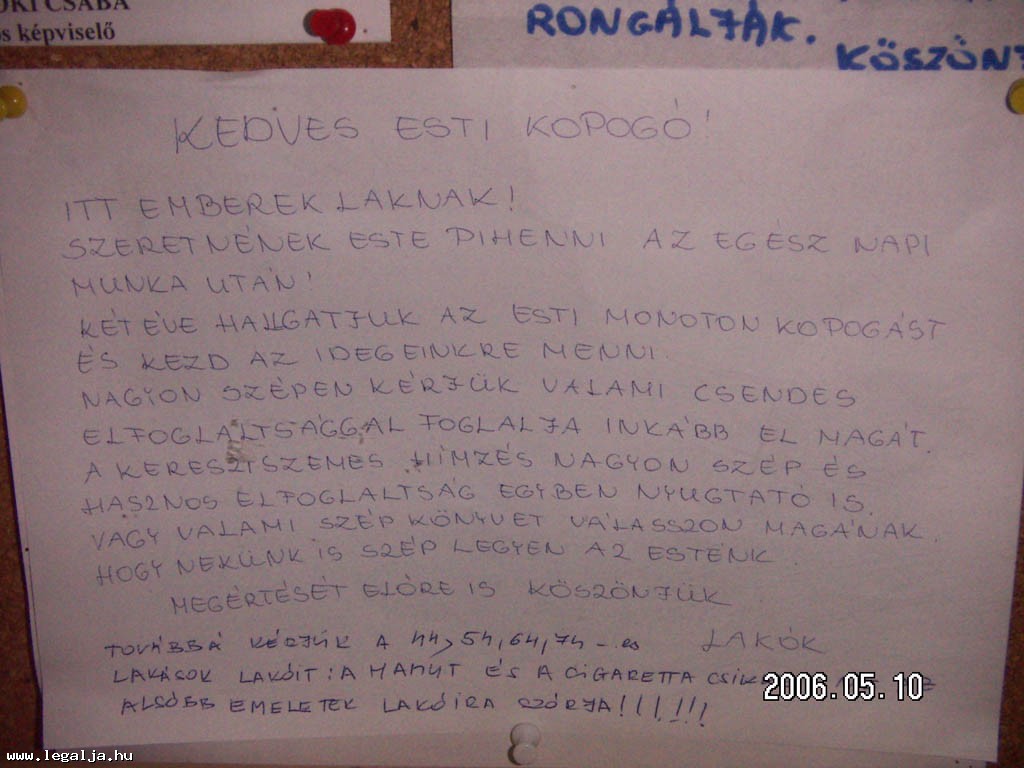 OKI CSABA
képviselő
RONGÁLJÁK.
KEDVES ESTI KOPOGÓ!
ITT EMBEREK LAKNAK!
SZERETNÉNEK ESTE PIHENNI AZ EGÉSZ NAPI
MUNKA UTÁN!
KÉT ÉVE HALLGATJUK AZ ESTI MONOTON KOPOGÁST
ÉS KEZD AZ IDEGEINKRE MENNI.
NAGYON SZÉPEN KÉRJÜK VALAMI CSENDES
ELFOGLALTSÁGGAL FOGLALJA INKÁBB EL MAGÁT.
A KERESZTSZEMES HÍMZÉS NAGYON SZÉP ÉS
HASZNOS ELFOGLALTSÁG EGYBEN NYUGTATÓ IS.
VAGY VALAMI SZÉP KÖNYVET VÁLASSZON MAGÁNAK.
HOGY NEKÜNK IS SZÉP LEGYEN AZ ESTÉNK.
MEGÉRTÉSÉT ELŐRE IS KÖSZÖNJÜK
LAKÓK
TOVÁBBÁ KÉRJÜK A 44, 54, 64, 74-es
LAKÁSOK LAKÓIT: A HAMUT ÉS A CIGARETTA
ALSÓBB EMELETEK LAKÓIRA SZÓRJA!!!!!!
2006.05.10
www.legalja.hu